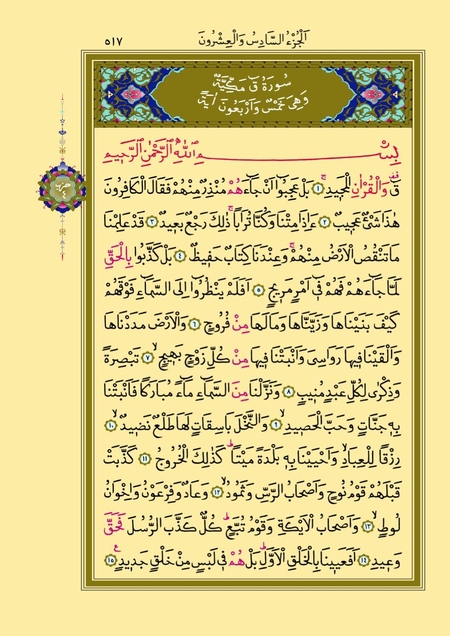 اَلْجُزْءُ السَّادِسُ وَالْعِشْرُونَ
٥١٧
سُورَةُ قٓ مَكِّيَّةٌ
وَهِيَ خَمْسٌ وَاَرْبَعُونَ اٰيَةً
بِسْمِ اللّٰهِ الرَّحْمٰنِ الرَّحِيمِ
قٓ وَالْقُرْاٰنِ الْمَجِيدِ ﴿١﴾ بَلْ عَجِبُٓوا اَنْ جَٓاءَهُمْ مُنْذِرٌ مِنْهُمْ فَقَالَ الْكَافِرُونَ
هٰذَا شَيْءٌ عَجِيبٌ ﴿٢﴾ ءَاِذَا مِتْنَا وَكُنَّا تُرَابًا ذٰلِكَ رَجْعٌ بَعِيدٌ ﴿٣﴾ قَدْ عَلِمْنَا
مَا تَنْقُصُ الْاَرْضُ مِنْهُمْ وَعِنْدَنَا كِتَابٌ حَفِيظٌ ﴿٤﴾ بَلْ كَذَّبُوا بِالْحَقِّ
لَمَّا جَٓاءَهُمْ فَهُمْ فِٓي اَمْرٍ مَرِيجٍ ﴿٥﴾ اَفَلَمْ يَنْظُرُٓوا اِلَى السَّمَٓاءِ فَوْقَهُمْ
كَيْفَ بَنَيْنَاهَا وَزَيَّنَّاهَا وَمَا لَهَا مِنْ فُرُوجٍ ﴿٦﴾ وَالْاَرْضَ مَدَدْنَاهَا
وَاَلْقَيْنَا فِيهَا رَوَاسِيَ وَاَنْبَتْنَا فِيهَا مِنْ كُلِّ زَوْجٍ بَهِيجٍ ﴿٧﴾ تَبْصِرَةً
وَذِكْرٰى لِكُلِّ عَبْدٍ مُنِيبٍ ﴿٨﴾ وَنَزَّلْنَا مِنَ السَّمَٓاءِ مَٓاءً مُبَارَكًا فَاَنْبَتْنَا
بِهِ جَنَّاتٍ وَحَبَّ الْحَصِيدِ ﴿٩﴾ وَالنَّخْلَ بَاسِقَاتٍ لَهَا طَلْعٌ نَضِيدٌ ﴿١٠﴾
رِزْقًا لِلْعِبَادِ وَاَحْيَيْنَا بِهِ بَلْدَةً مَيْتًا كَذٰلِكَ الْخُرُوجُ ﴿١١﴾ كَذَّبَتْ
قَبْلَهُمْ قَوْمُ نُوحٍ وَاَصْحَابُ الرَّسِّ وَثَمُودُ ﴿١٢﴾ وَعَادٌ وَفِرْعَوْنُ وَاِخْوَانُ
لُوطٍ ﴿١٣﴾ وَاَصْحَابُ الْاَيْكَةِ وَقَوْمُ تُبَّعٍ كُلٌّ كَذَّبَ الرُّسُلَ فَحَقَّ
وَعِيدِ ﴿١٤﴾ اَفَعَيِينَا بِالْخَلْقِ الْاَوَّلِ بَلْ هُمْ فِي لَبْسٍ مِنْ خَلْقٍ جَدِيدٍ ﴿١٥﴾